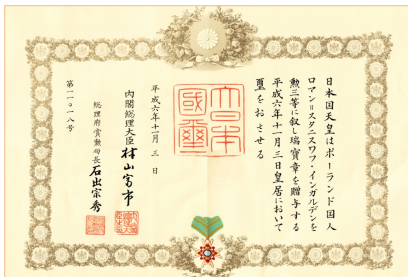 日本国天皇はポーランド国人
ロマン=スタニスワフ・インガルデンを
勲三等に叙し瑞寳章を贈与する
平成六年十一月三日皇居において
璽をおさせる
大日本國璽
平成六年十一月三日
内閣総理大臣 村山富市
総理府賞勲局長 石出宗秀
第一一〇一八号